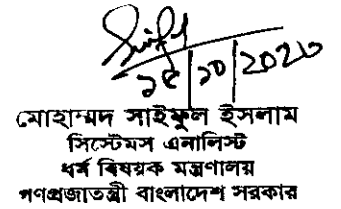 ১৫/১০/২০২০
মোহাম্মদ সাইফুল ইসলাম
সিস্টেমস এনালিস্ট
ধর্ম বিষয়ক মন্ত্রণালয়
গণপ্রজাতন্ত্রী বাংলাদেশ সরকার